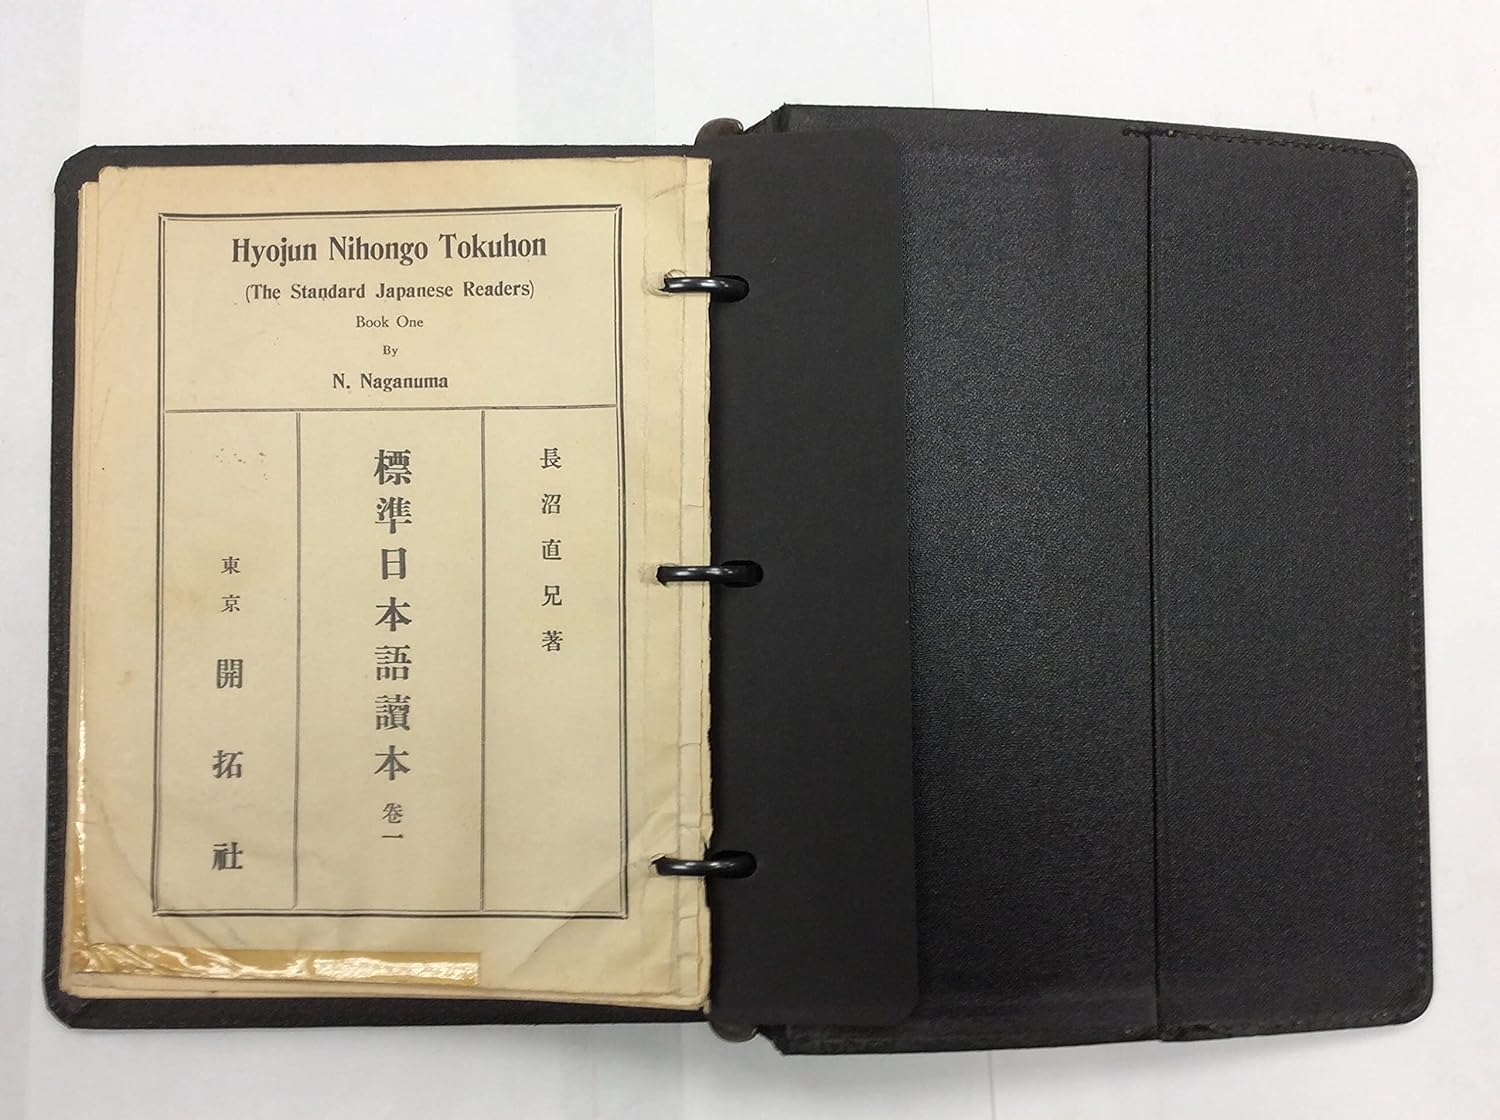 Hyojun Nihongo Tokuhon
(The Standard Japanese Readers)
Book One
By
N. Naganuma
長沼直兄著
標準日本語讀本 卷一
東京 開拓社